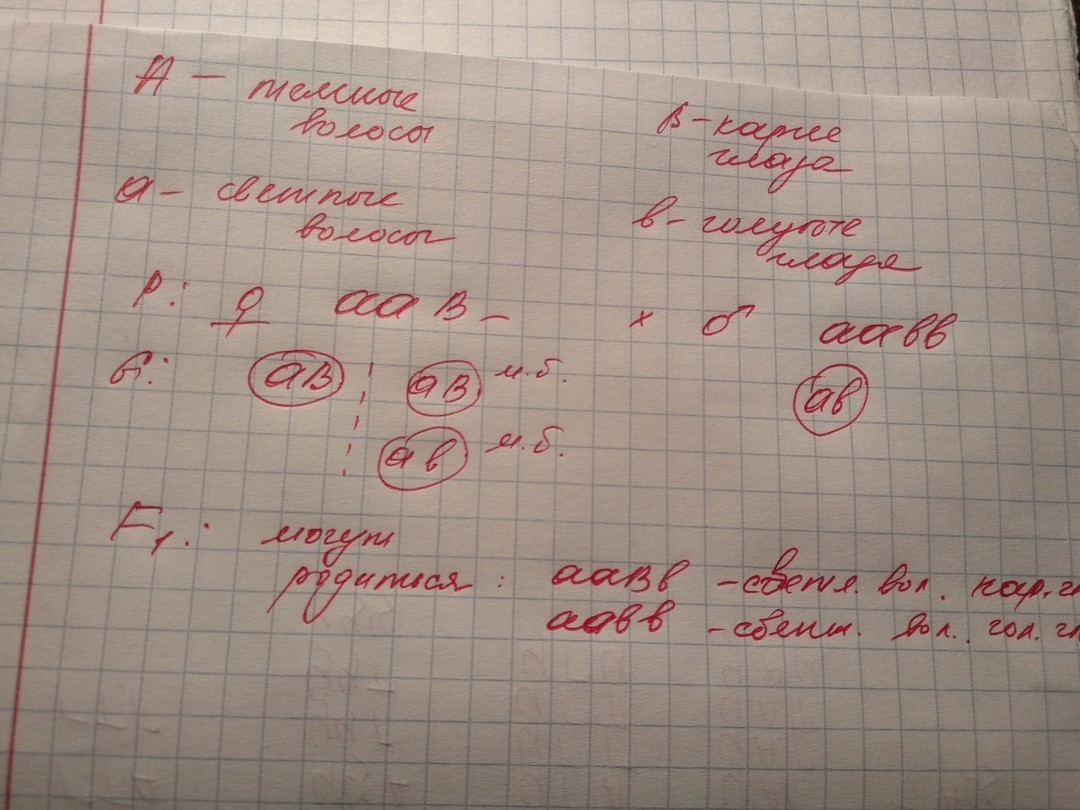 А – темные
волосы
В – карие
глаза
а – светлые
волосы
в – голубые
глаза
Р: ♀ ааВ_ х ♂ аавв
G: аВ аВ м.б. ав
ав м.б.
F₁: могут
родиться: ааВв – светл. вол. кар. гл
аавв – светл. вол. гол. гл